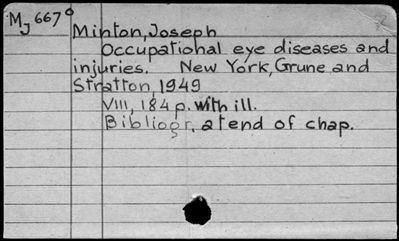 MJ 667° Minton, Joseph
Occupational eye diseases and
injuries. New York, Grune and
Stratton, 1949
VIII, 184 p. with ill.
Bibliogr. at end of chap.